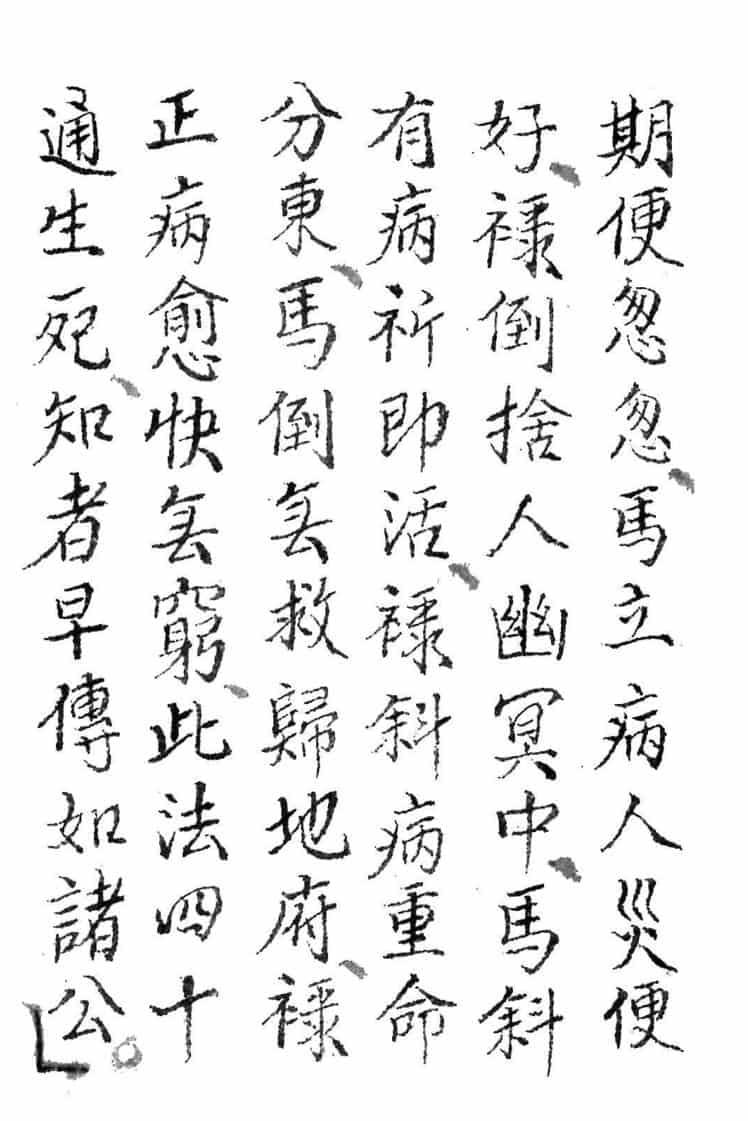 期便忽忽馬立病人災便
好祿倒捨人幽冥中馬斜
有病祈即活祿斜病重命
分東馬倒䒭救歸地府祿
正病愈快䒭窮此法四十
通生死知者早傳如諸公